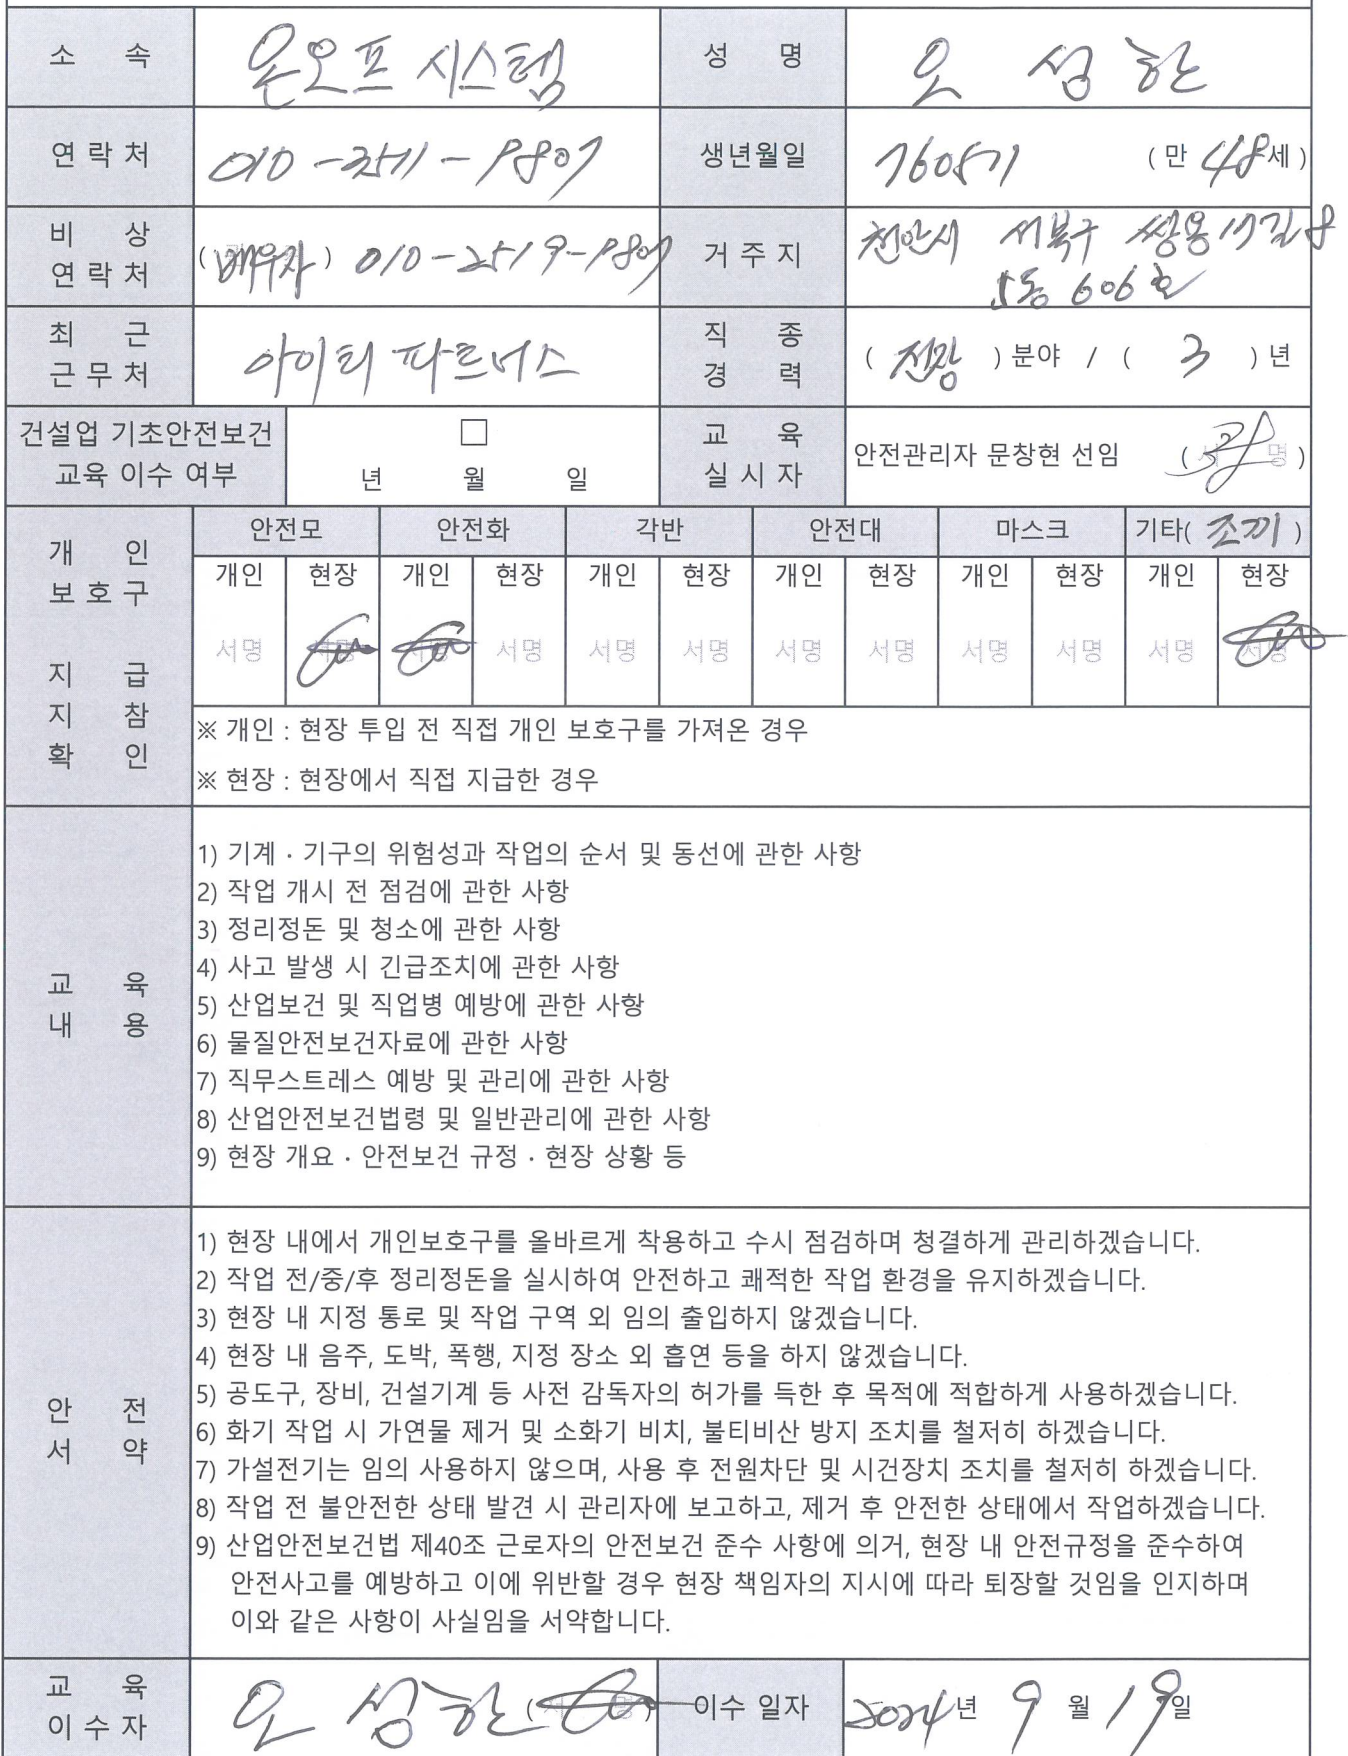 소 속 온오프 시스템 성 명 오 성 한
연 락 처 생년월일 (만 48세)
비 상
연 락 처 (배우자) 010-2519-9807 거 주 지 천안시 서북구 쌍용
606호
최 근
근 무 처 아이티 파트너스 직 종
경 력 (전장) 분야 / ( 3 ) 년
건설업 기초안전보건
교육 이수 여부 □
년 월 일 교 육
실 시 자 안전관리자 문창현 선임 (서명)
개 인
보 호 구
지 급
지 참
확 인
안전모 안전화 각반 안전대 마스크 기타( 조끼 )
개인 현장 개인 현장 개인 현장 개인 현장 개인 현장 개인 현장
서명 서명 서명 서명 서명 서명 서명 서명 서명 서명 서명 서명
※ 개인 : 현장 투입 전 직접 개인 보호구를 가져온 경우
※ 현장 : 현장에서 직접 지급한 경우
교 육
내 용
1) 기계 · 기구의 위험성과 작업의 순서 및 동선에 관한 사항
2) 작업 개시 전 점검에 관한 사항
3) 정리정돈 및 청소에 관한 사항
4) 사고 발생 시 긴급조치에 관한 사항
5) 산업보건 및 직업병 예방에 관한 사항
6) 물질안전보건자료에 관한 사항
7) 직무스트레스 예방 및 관리에 관한 사항
8) 산업안전보건법령 및 일반관리에 관한 사항
9) 현장 개요 · 안전보건 규정 · 현장 상황 등
안 전
서 약
1) 현장 내에서 개인보호구를 올바르게 착용하고 수시 점검하며 청결하게 관리하겠습니다.
2) 작업 전/중/후 정리정돈을 실시하여 안전하고 쾌적한 작업 환경을 유지하겠습니다.
3) 현장 내 지정 통로 및 작업 구역 외 임의 출입하지 않겠습니다.
4) 현장 내 음주, 도박, 폭행, 지정 장소 외 흡연 등을 하지 않겠습니다.
5) 공도구, 장비, 건설기계 등 사전 감독자의 허가를 득한 후 목적에 적합하게 사용하겠습니다.
6) 화기 작업 시 가연물 제거 및 소화기 비치, 불티비산 방지 조치를 철저히 하겠습니다.
7) 가설전기는 임의 사용하지 않으며, 사용 후 전원차단 및 시건장치 조치를 철저히 하겠습니다.
8) 작업 전 불안전한 상태 발견 시 관리자에 보고하고, 제거 후 안전한 상태에서 작업하겠습니다.
9) 산업안전보건법 제40조 근로자의 안전보건 준수 사항에 의거, 현장 내 안전규정을 준수하여
안전사고를 예방하고 이에 위반할 경우 현장 책임자의 지시에 따라 퇴장할 것임을 인지하며
이와 같은 사항이 사실임을 서약합니다.
교 육
이 수 자 오 성 한 (서명) 이수 일자 2024년 9 월 19일